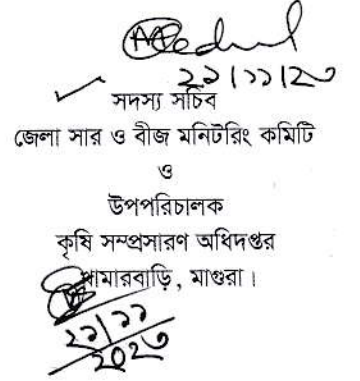 ২১|১১|২৩
সদস্য সচিব
জেলা সার ও বীজ মনিটরিং কমিটি
ও
উপপরিচালক
কৃষি সম্প্রসারণ অধিদপ্তর
খামারবাড়ি, মাগুরা।
২১|১১
২০২৩